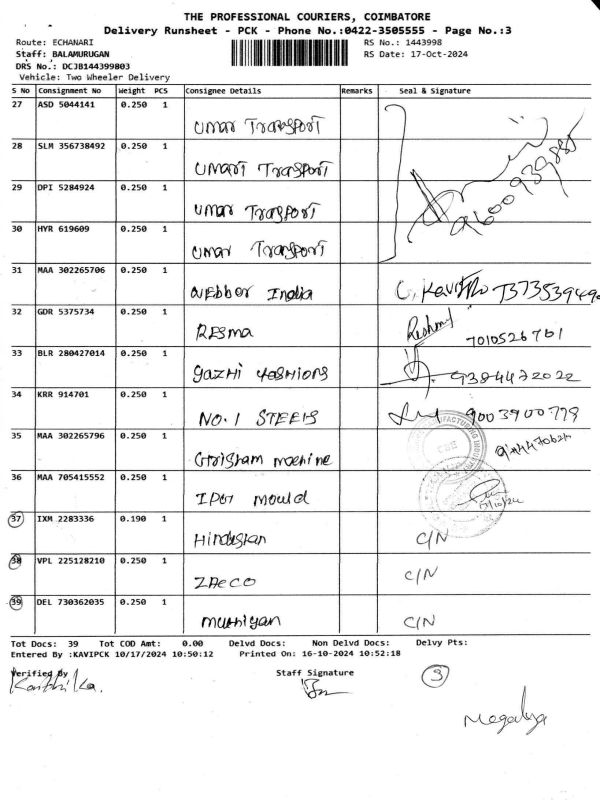 THE PROFESSIONAL COURIERS, COIMBATORE
Delivery Runsheet - PCK - Phone No.:0422-3505555 - Page No.:3
Route: ECHANARI RS No.: 1443998
Staff: BALAMURUGAN RS Date: 17-Oct-2024
DRS No.: DCJB144399803
Vehicle: Two Wheeler Delivery
S No Consignment No Weight PCS Consignee Details Remarks Seal & Signature
27 ASD 5044141 0.250 1 Umar Transport
28 SLM 356738492 0.250 1 Umar Transport
29 DPI 5284924 0.250 1 Umar Transport
9600939885
30 HYR 619609 0.250 1 Umar Transport
31 MAA 302265706 0.250 1 Webbor India
32 GDR 5375734 0.250 1 Resma Reshma 7010526761
33 BLR 280427014 0.250 1 9384472022
34 KRR 914701 0.250 1 NO.1 STEELS 9003900779
35 MAA 302265796 0.250 1
36 MAA 705415552 0.250 1 Mould
37 IXM 2283336 0.190 1 Hindustan C/N
38 VPL 225128210 0.250 1 ZAECO C/N
39 DEL 730362035 0.250 1 C/N
Tot Docs: 39 Tot COD Amt: 0.00 Delvd Docs: Non Delvd Docs: Delvy Pts:
Entered By :KAVIPCK 10/17/2024 10:50:12 Printed On: 16-10-2024 10:52:18
Verified By Staff Signature 3
Karthika.